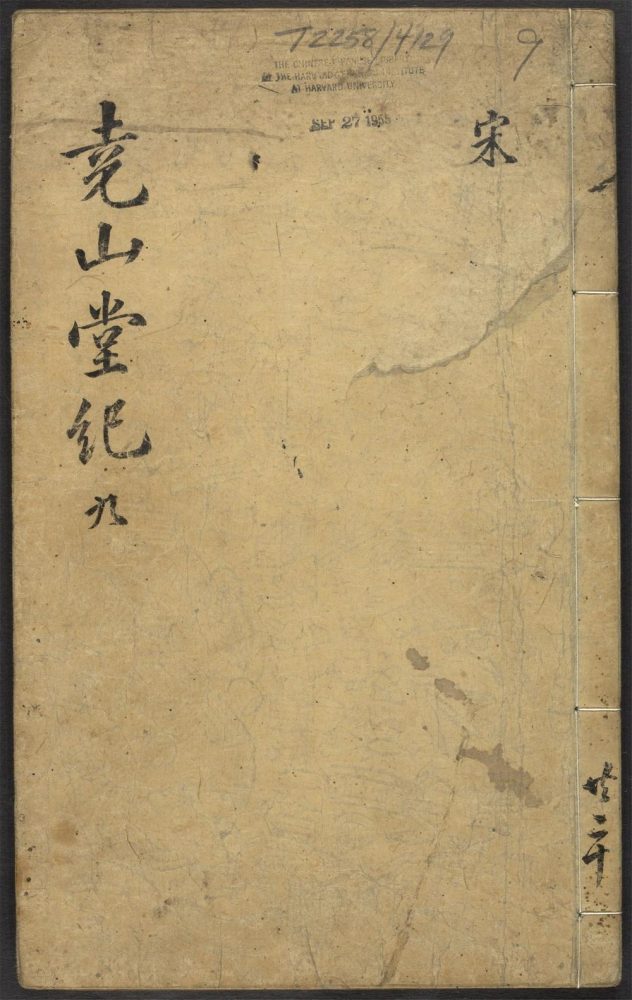 T2258/4129
9
THE CHINESE-JAPANESE LIBRARY
OF THE HARVARD-YENCHING INSTITUTE
AT HARVARD UNIVERSITY
SEP 27 1955
宋
尭山堂紀 九
共二十